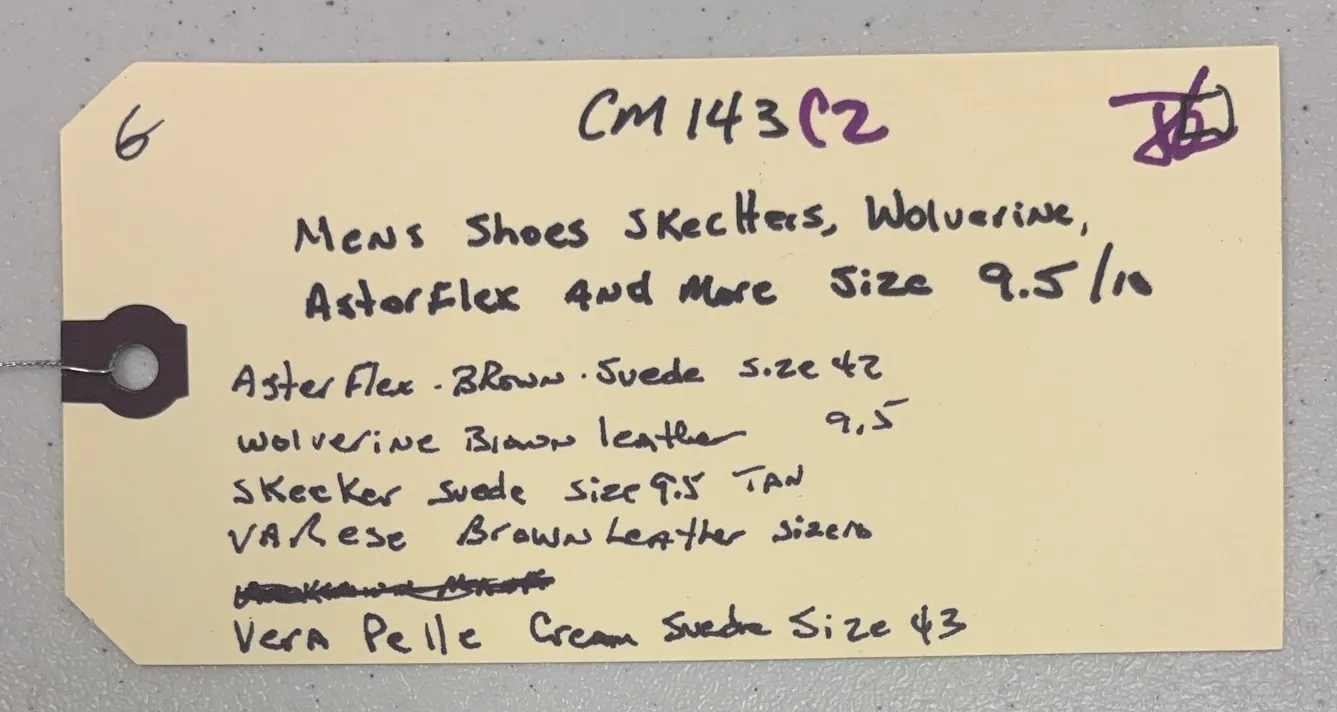 6
CM143C2
Mens Shoes Skechers, Wolverine,
AsterFlex and More Size 9.5/10
Aster Flex. Brown. Suede size 42
Wolverine Brown leather 9.5
Skecker suede size 9.5 TAN
VARese Brown Leather size 10
Vera Pelle Cream Suede Size 43